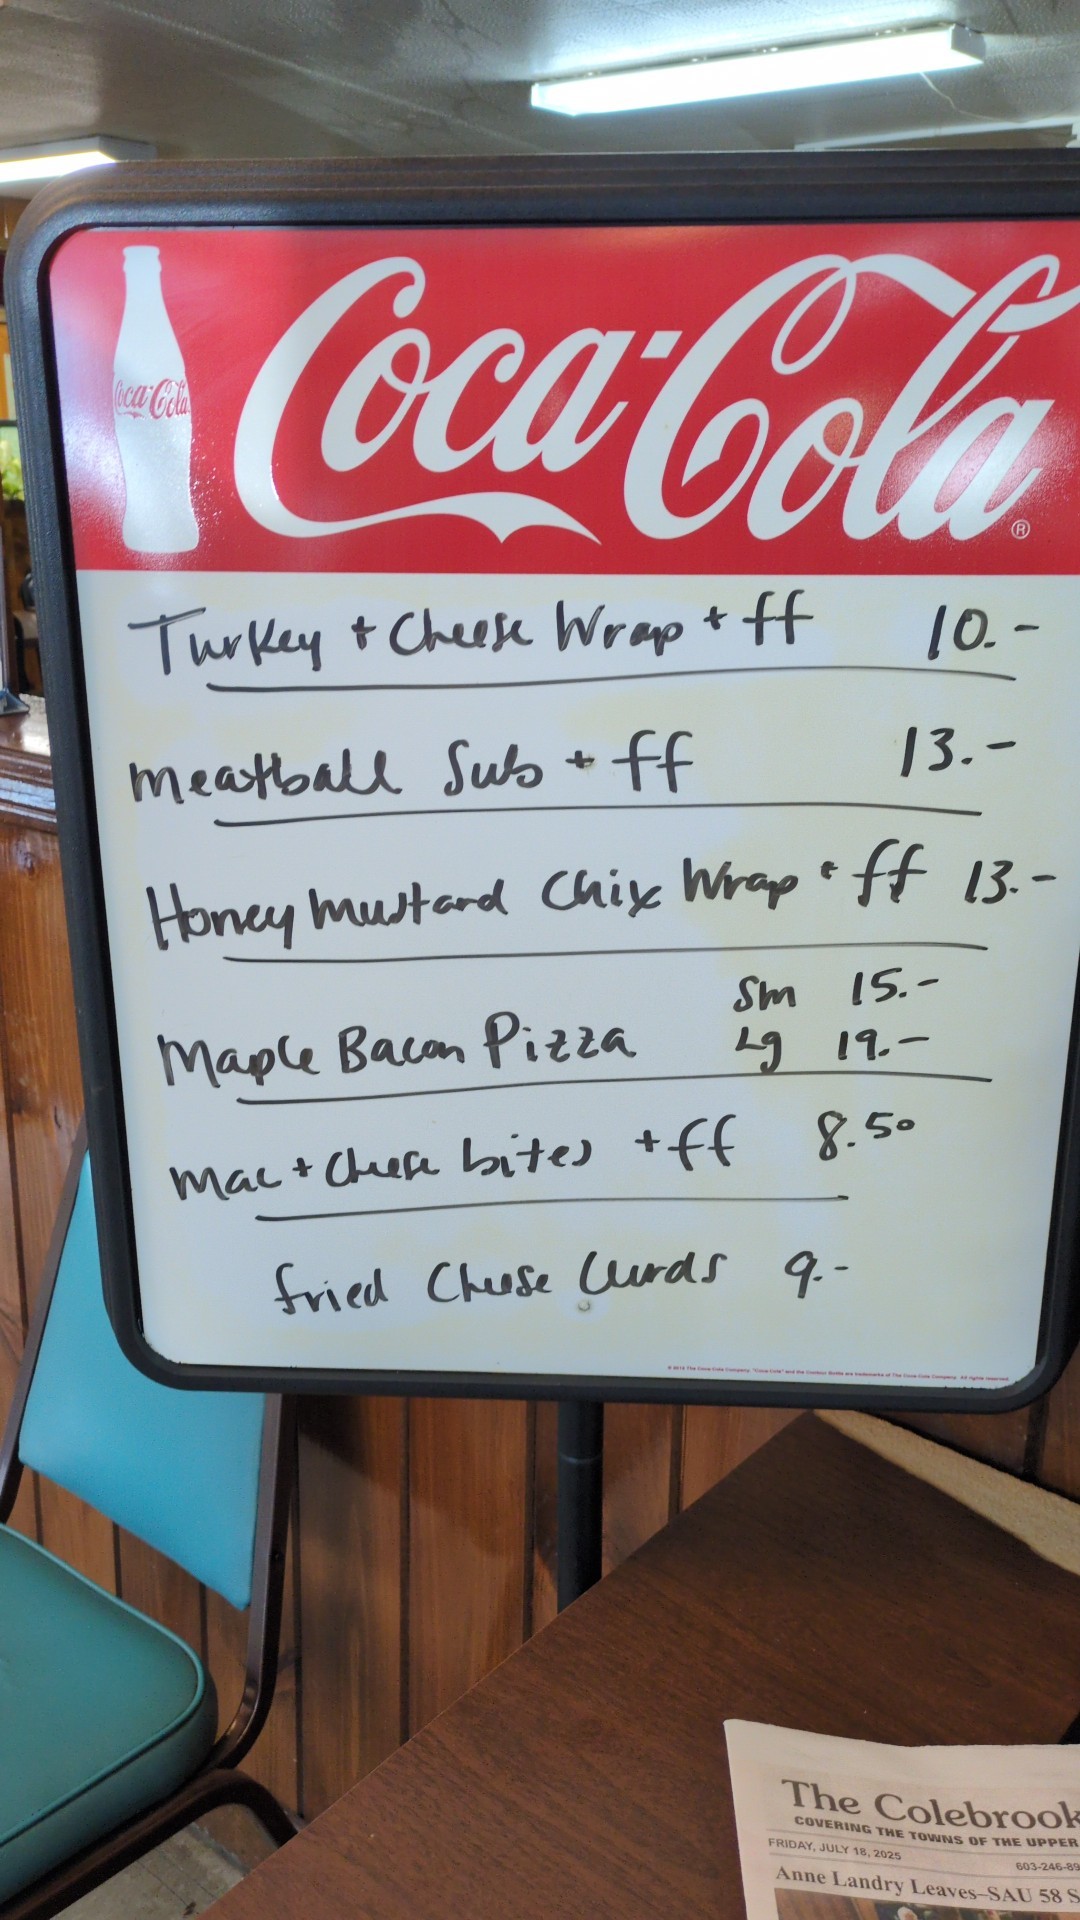 Coca-Cola
Coca-Cola ®
Turkey + Cheese Wrap + ff 10.-
Meatball Sub + ff 13.-
Honey Mustard Chix Wrap + ff 13.-
Sm 15.-
Maple Bacon Pizza Lg 19.-
Mac + Cheese bites + ff 8.50
fried Cheese Curds 9.-
The Colebrook
COVERING THE TOWNS OF THE UPPER
FRIDAY, JULY 18, 2025
603-246-89
Anne Landry Leaves–SAU 58 S